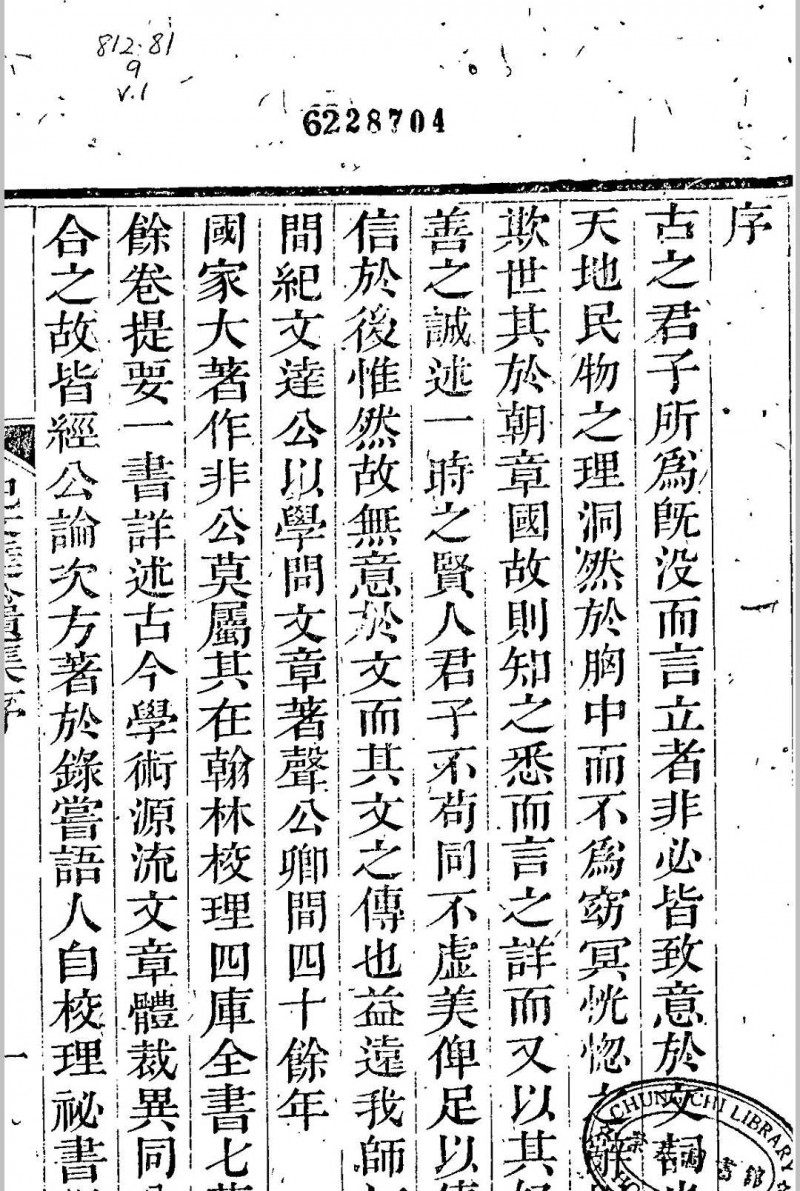 812.81
9
v.1
6228704
序
古之君子所爲既没而言立者非必皆致意於文詞
天地民物之理洞然於胸中而不爲窈冥恍惚
欺世其於朝章國故則知之悉而言之詳而又以其
善之誠述一時之賢人君子不苟同不虛美俾足以
信於後惟然故無意於文而其文之傳也益遠我師
間紀文達公以學問文章著聲公卿間四十餘年
國家大著作非公莫屬其在翰林校理四庫全書七
餘卷提要一書詳述古今學術源流文章體裁異同
合之故皆經公論次方著於錄嘗語人自校理祕書
遺集序
一
CHUNG CHI LIBRARY
書館